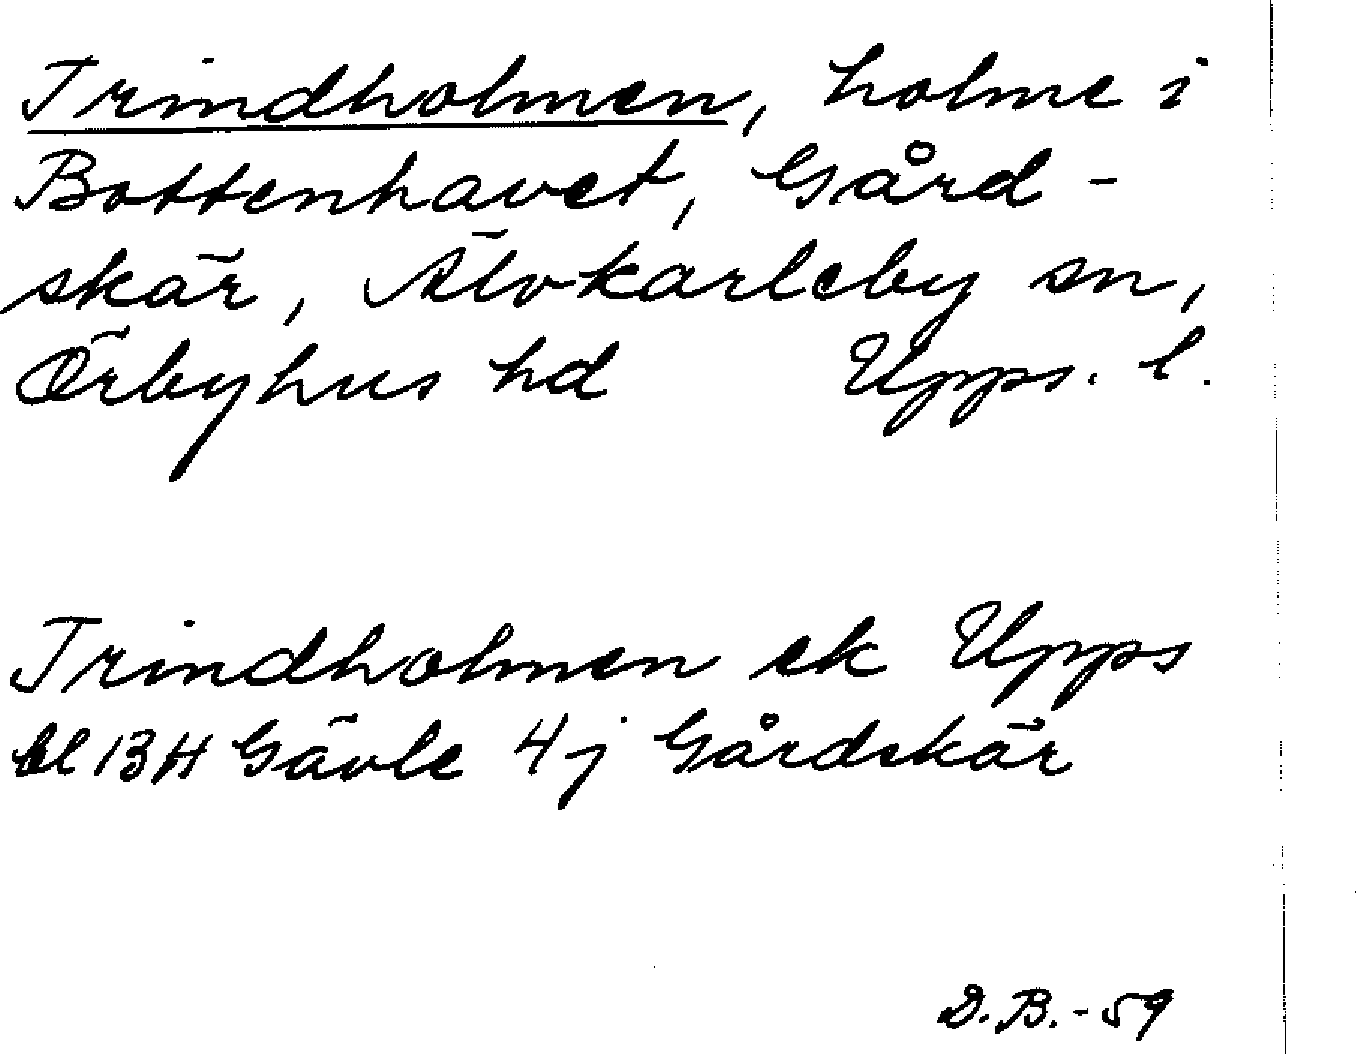 Trindholmen, holme i
Bottenhavet, Gård-
skär, Älvkarleby sn,
Örbyhus hd Upps. l.
Trindholmen ek Upps
bl 13H Gävle 4j Gårdskär
D.B.-59